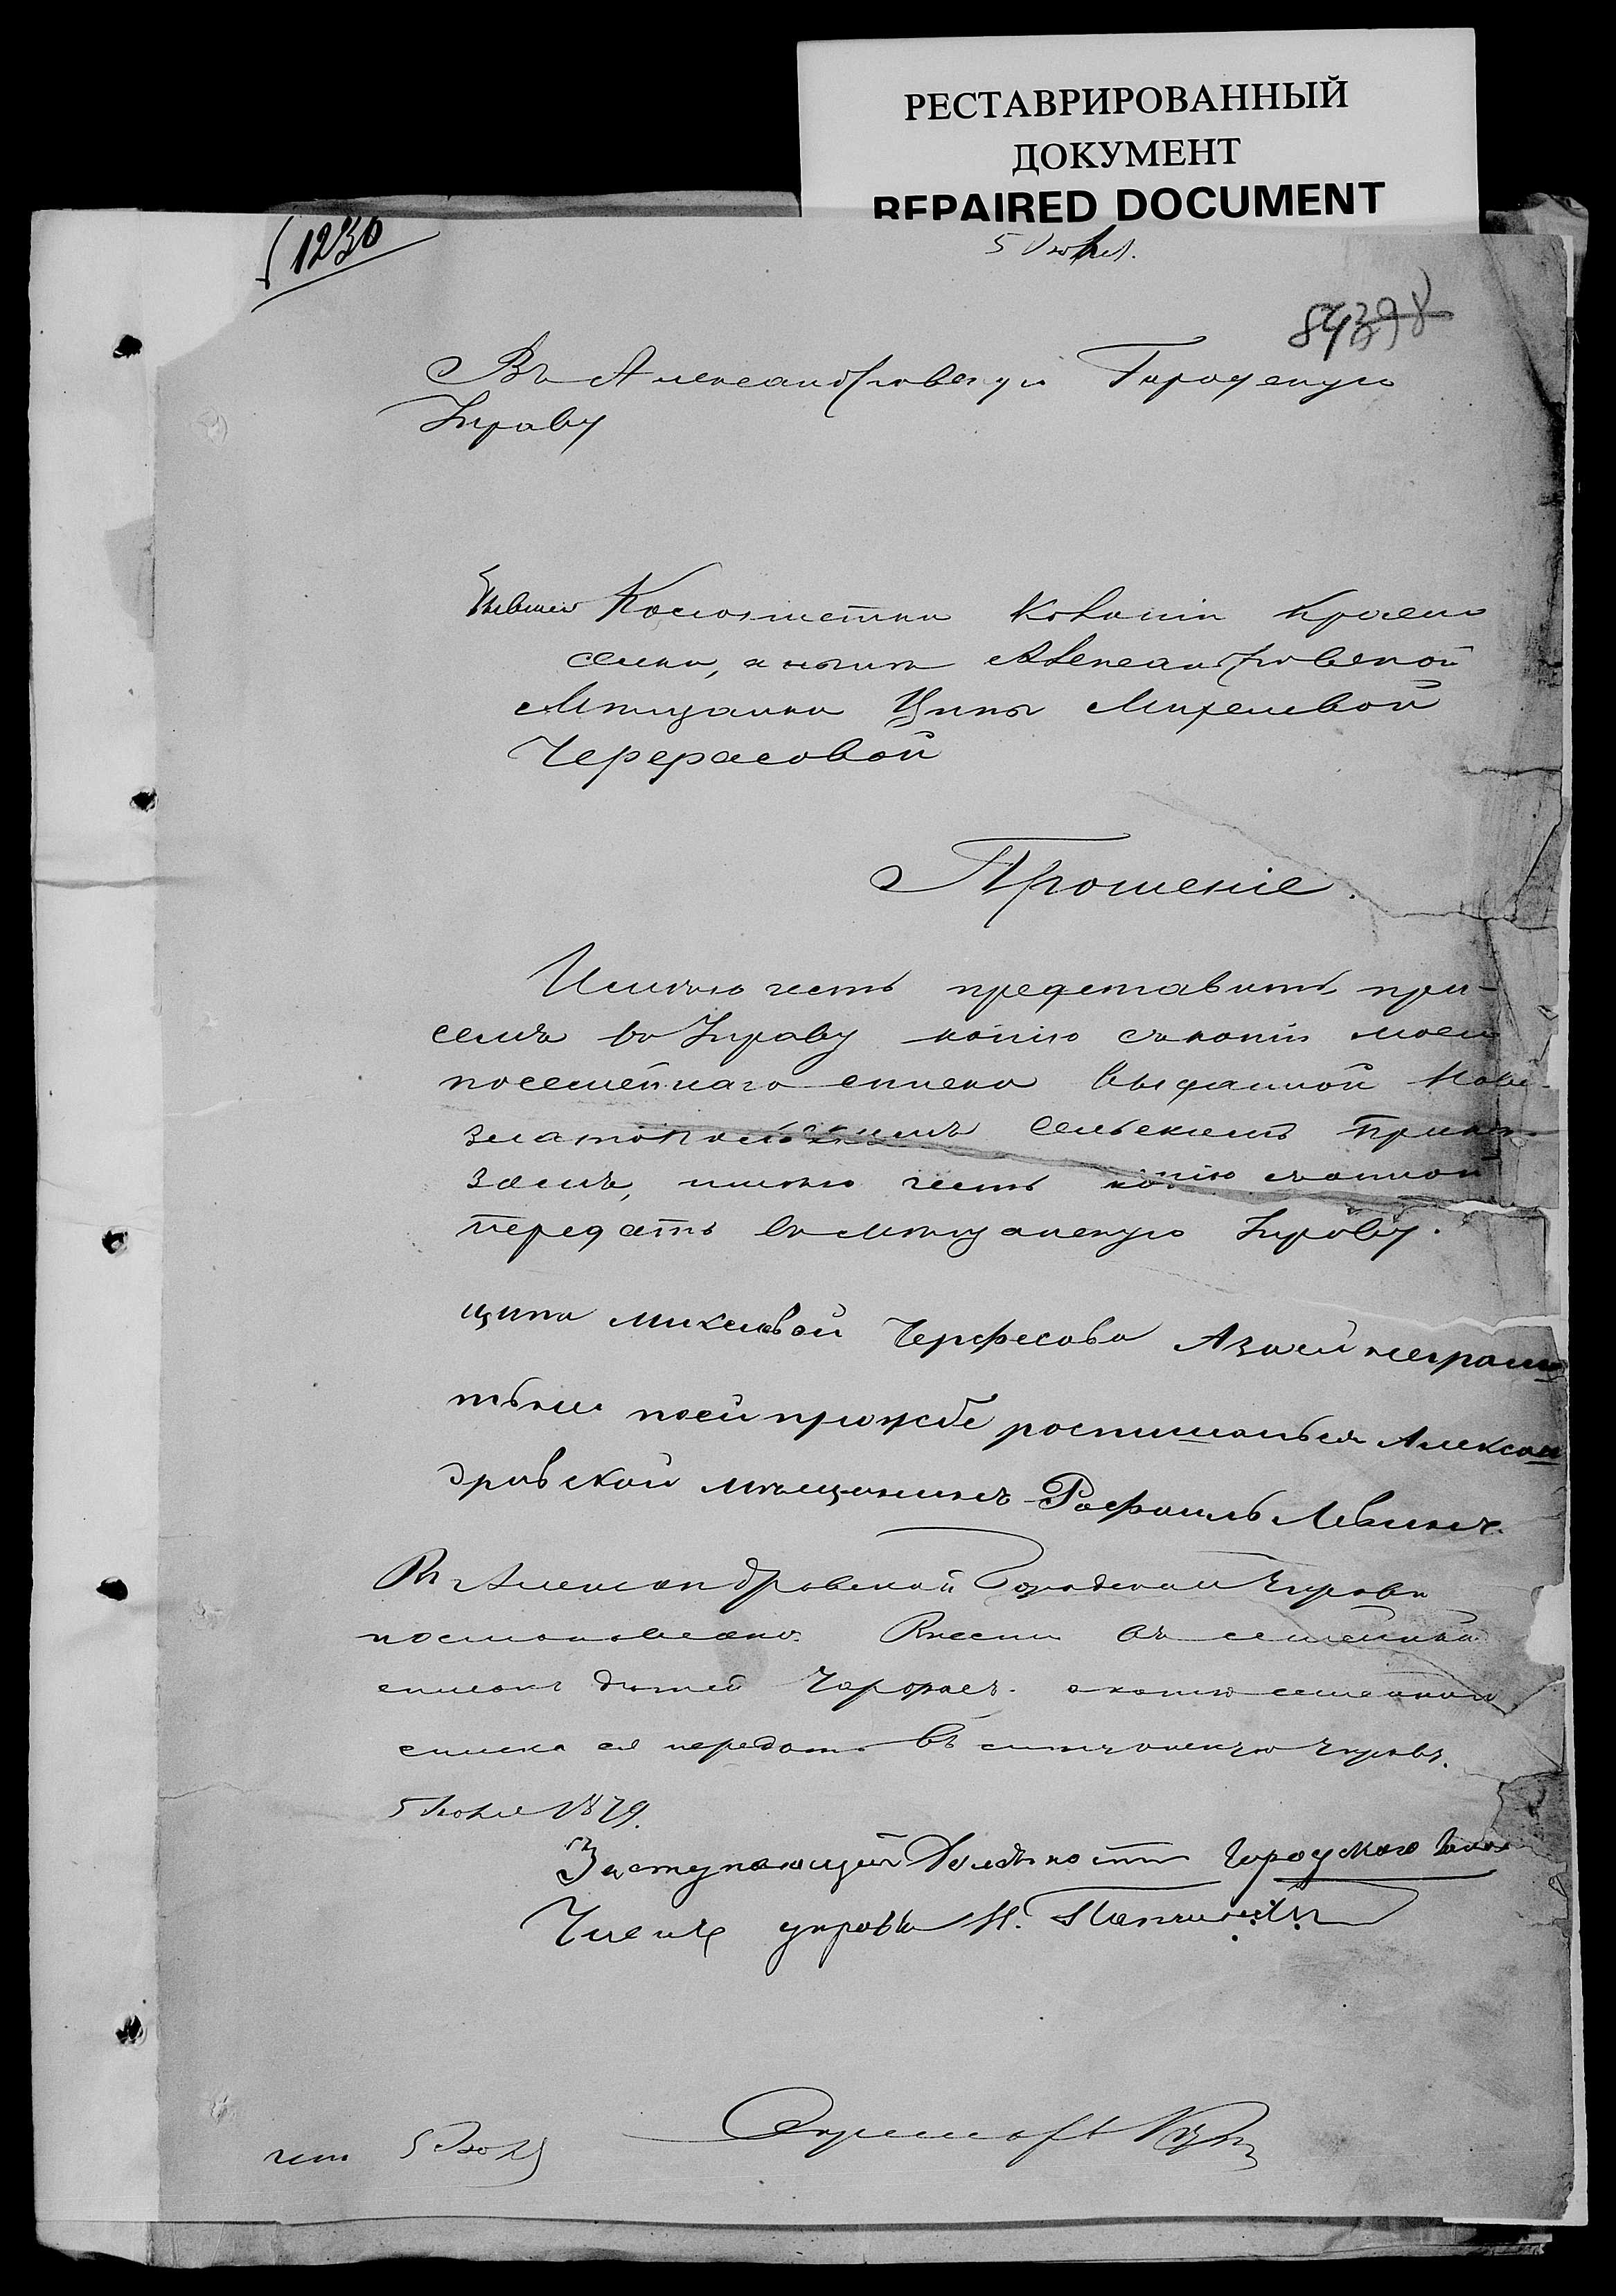 РЕСТАВРИРОВАННЫЙ
ДОКУМЕНТ
REPAIRED DOCUMENT
1230
5 Іюля.
84 398
Въ Александровскую Городскую
Управу
Бывшей Колонистки Колоніи Красно
селки, а нынѣ Александровской
Мѣщанки Ципы Михелевой
Черфасовой
Прошеніе.
Имѣю честь представить при
семъ въ Управу копію съ копіи моего
посемейнаго списка выданной Ново-
златопольскимъ Сельскимъ Прика-
зомъ, имѣю честь копію съ оной
передать въ мѣщанскую Управу.
Ципа Михелевой Черфасова А за ей неграм
тьни по ей прозжбе росписалься Алексан
дровской мещанинъ Рафаиль Левинъ.
Въ Александровской Городской Управѣ
постановлено: Внести въ семейный
списокъ дѣтей Черфасъ. а копію семейнаго
списка ея передать въ мѣщанскую Управу.
5 Іюля 1879.
Заступающій Должность Городского Голов
Членъ управы И.
5 Іюля